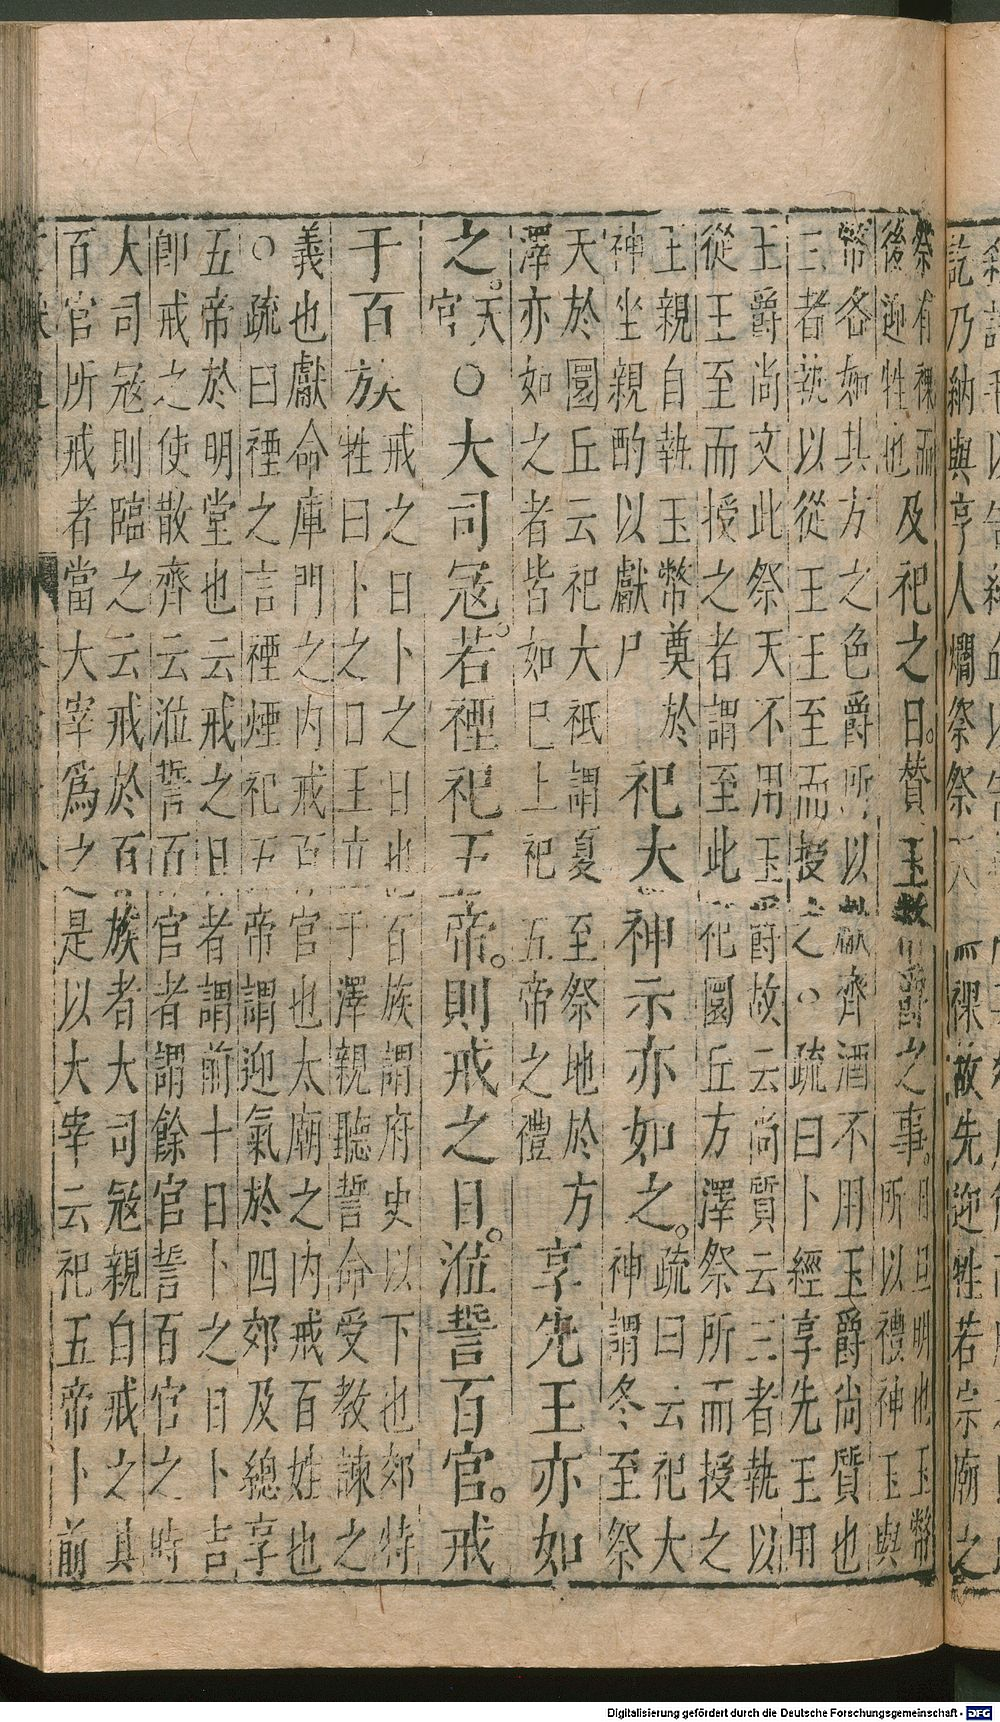 記乃納與亨人爓祭祭
祼故先迎牲若宗廟之
祭有祼而
後迎牲也
及祀之日。贊玉幣爵之事。
日旦明也玉幣
所以禮神玉與
幣各如其方之色爵所以獻齊酒不用玉爵尚質也
三者執以從王王至而授之○疏曰卜經享先王用
玉爵尚文此祭天不用玉爵故云尚質云三者執以
從王至而授之者謂至此祀圜丘方澤祭所而授之
王親自執玉幣奠於
神坐親酌以獻尸
祀大神示亦如之。
疏曰云祀大
神謂冬至祭
天於圜丘云祀大祇謂夏至祭地於方
澤亦如之者皆如已上祀五帝之禮
享先王亦如
之。天官○大司冦。若禋祀五帝。則戒之日。涖誓百官。戒
于百族
戒之日卜之日也百族謂府史以下也郊特
牲曰卜之日王立于澤親聽誓命受教諫之
義也獻命庫門之內戒百官也太廟之內戒百姓也
○疏曰禋之言禋煙祀五帝謂迎氣於四郊及總享
五帝於明堂也云戒之日者謂前十日卜之日卜吉
卽戒之使散齊云涖誓百官者謂餘官誓百官之時
大司冦則臨之云戒於百族者大司冦親自戒之其
百官所戒者當大宰爲之是以大宰云祀五帝卜前
Digitalisierung gefördert durch die Deutsche Forschungsgemeinschaft - DFG